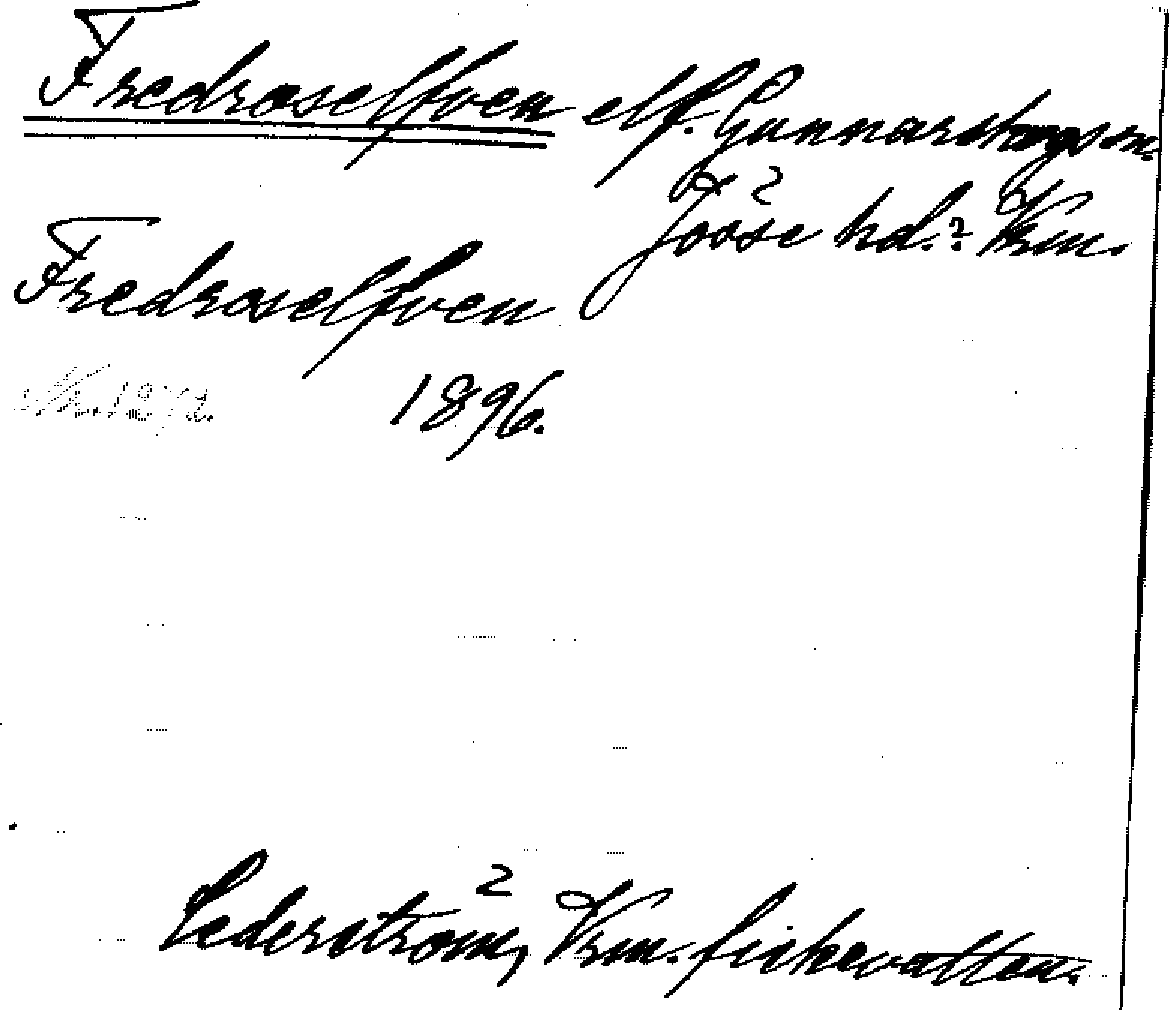 Fredroselfven elf. Gunnarskogs sn.
Jösse hd.? Vrm.
Fredroselfven
1896.
Cederström, Vrm. fiskevatten.